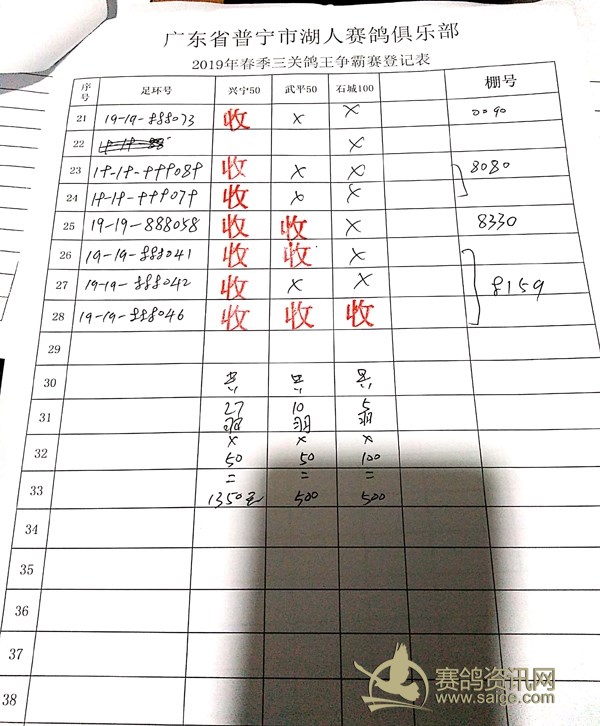 广东省普宁市湖人赛鸽俱乐部
2019年春季三关鸽王争霸赛登记表
序号 足环号 兴宁50 武平50 石城100 棚号
21 19-19-888073 收 × × 0090
22 ×
23 19-19-999089 收 × × 8080
24 19-19-999079 收 × ×
25 19-19-888058 收 收 × 8330
26 19-19-888041 收 收 ×
27 19-19-888042 收 × × 8159
28 19-19-888046 收 收 收
29
30 共 共 共
31 27羽 10羽 5羽
32 × × ×
50 50 100
33 = = =
1350元 500 500
34
35
36
37
38
赛鸽资讯网
www.saige.com